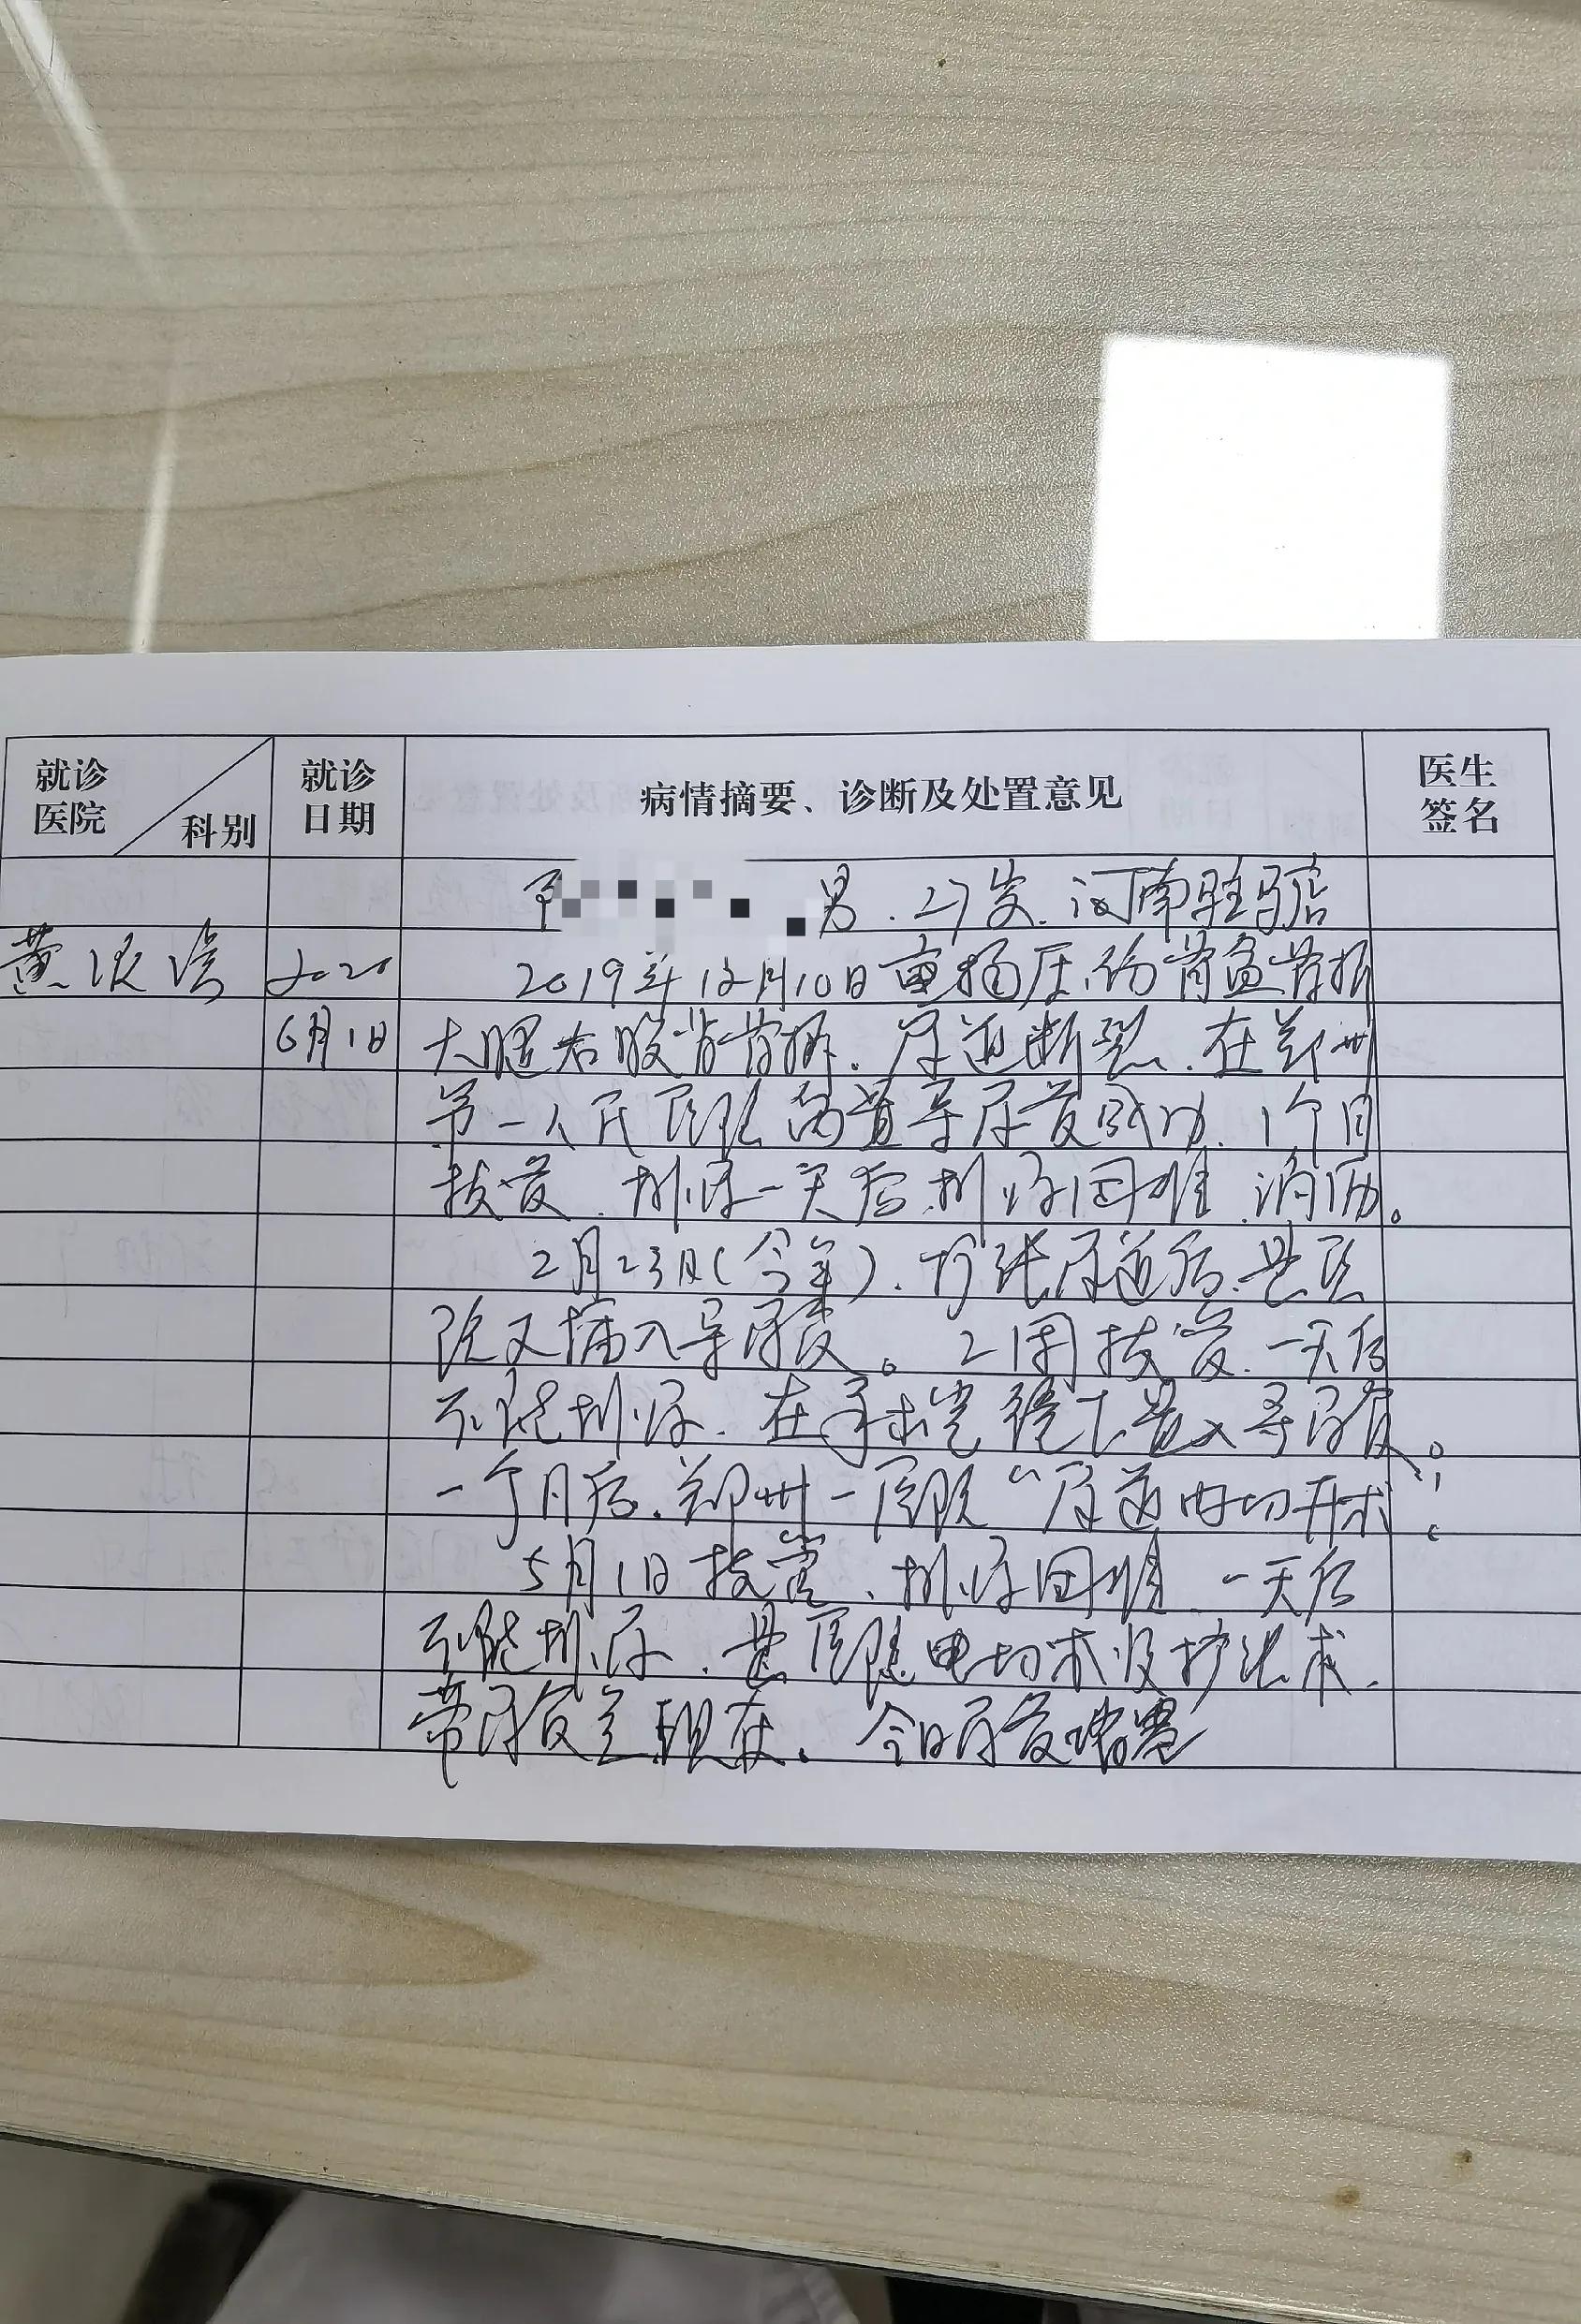 就诊医院 科别 就诊日期 病情摘要、诊断及处置意见 医生签名
男.27岁.河南驻马店
2020 2019年12月10日重物压伤骨盆骨折
6月1日 大腿右股骨骨折.尿道断裂.在郑州
第一人民医院 置导尿管成功.1个月
拔管.排尿一天后排尿困难.淌沥。
2月23日(今年).扩张尿道后.县医
院又插入导尿管。2周拔管.一天后
不能排尿.在手术室镜下置入导尿管。
一个月后.郑州一医院“尿道内切开术”。
5月1日拔管、排尿困难.一天后
不能排尿.县医院电切术及扩张术.
带尿管至现在.今日尿管堵塞